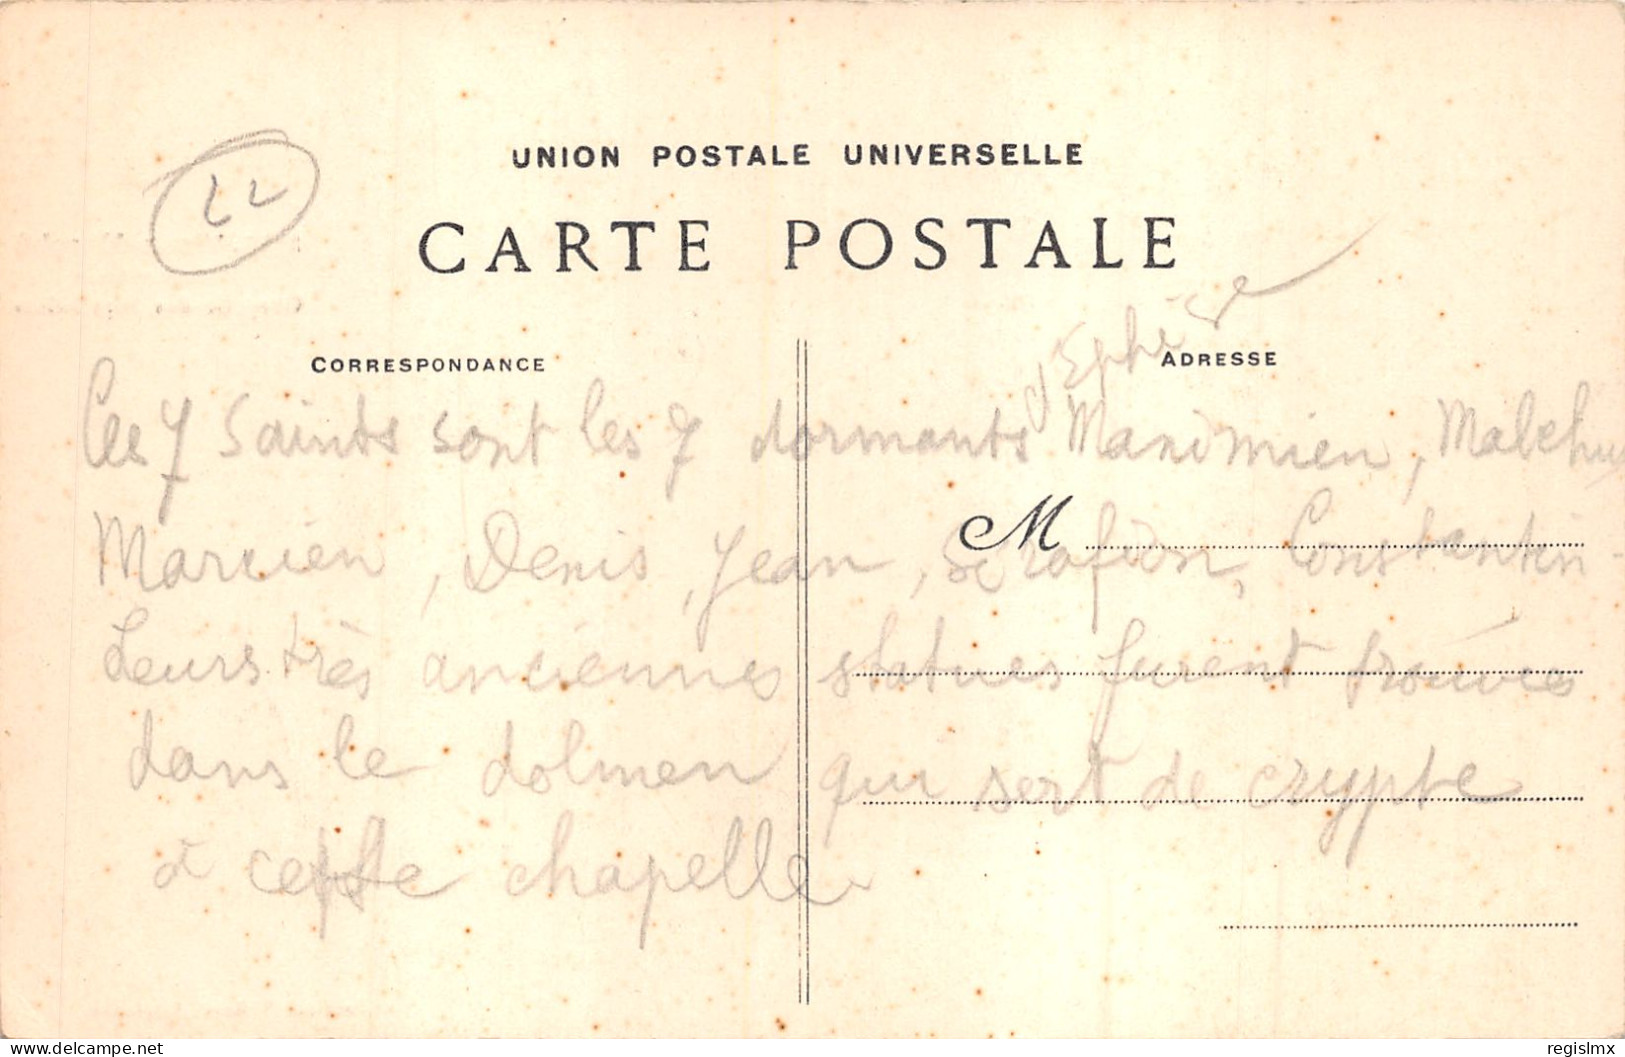 22
UNION POSTALE UNIVERSELLE
CARTE POSTALE
CORRESPONDANCE
ADRESSE
d'Ephèse
Ces 7 Saints sont les 7 dormants Maximien, Malchus
M
Marcien, Denis, Jean, Sérafion, Constantin-
Leurs très anciennes statues furent trouvées
dans le dolmen qui sert de crypte
à cette chapelle
delcampe.net
regislmx